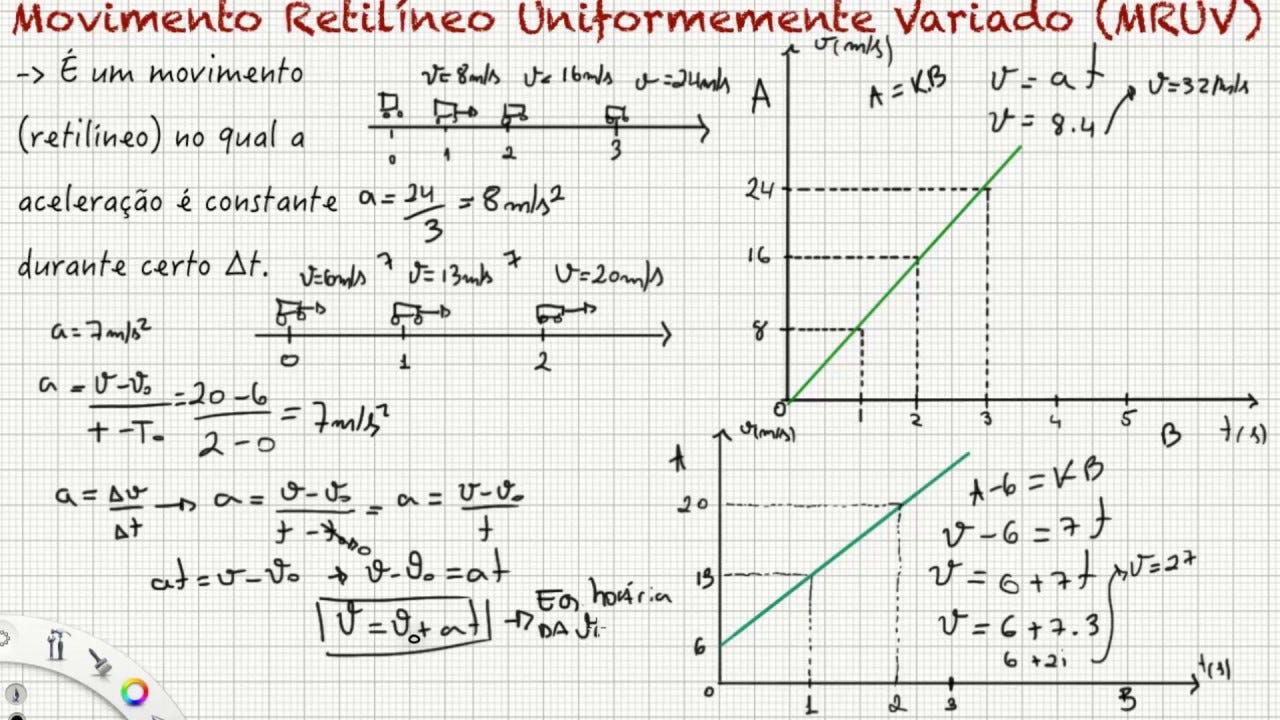 Movimento Retilíneo Uniformemente Variado (MRUV)
-> É um movimento
(retilíneo) no qual a
aceleração é constante
durante certo Δt.
v=8m/s v=16m/s v=24m/s
0 1 2 3
a = 24/3 = 8m/s²
v=6m/s 7 v=13m/s 7 v=20m/s
0 1 2
a=7m/s²
a = v-v₀/t-T₀ = 20-6/2-0 = 7m/s²
a = Δv/Δt → a = v-v₀/t-t₀ 0 = a = v-v₀/t
at = v-v₀ → v-v₀ = at
v = v₀ + at → Eq horária
DA
v(m/s)
A
A = K.B
v = a t
v = 8.4
v=32m/s
24
16
8
0 1 2 3 4 5
B t(s)
v(m/s)
A
20
13
6
0 1 2 3 B t(s)
A-6 = KB
v-6 = 7t
v = 6+7t
v=27
v = 6+7.3